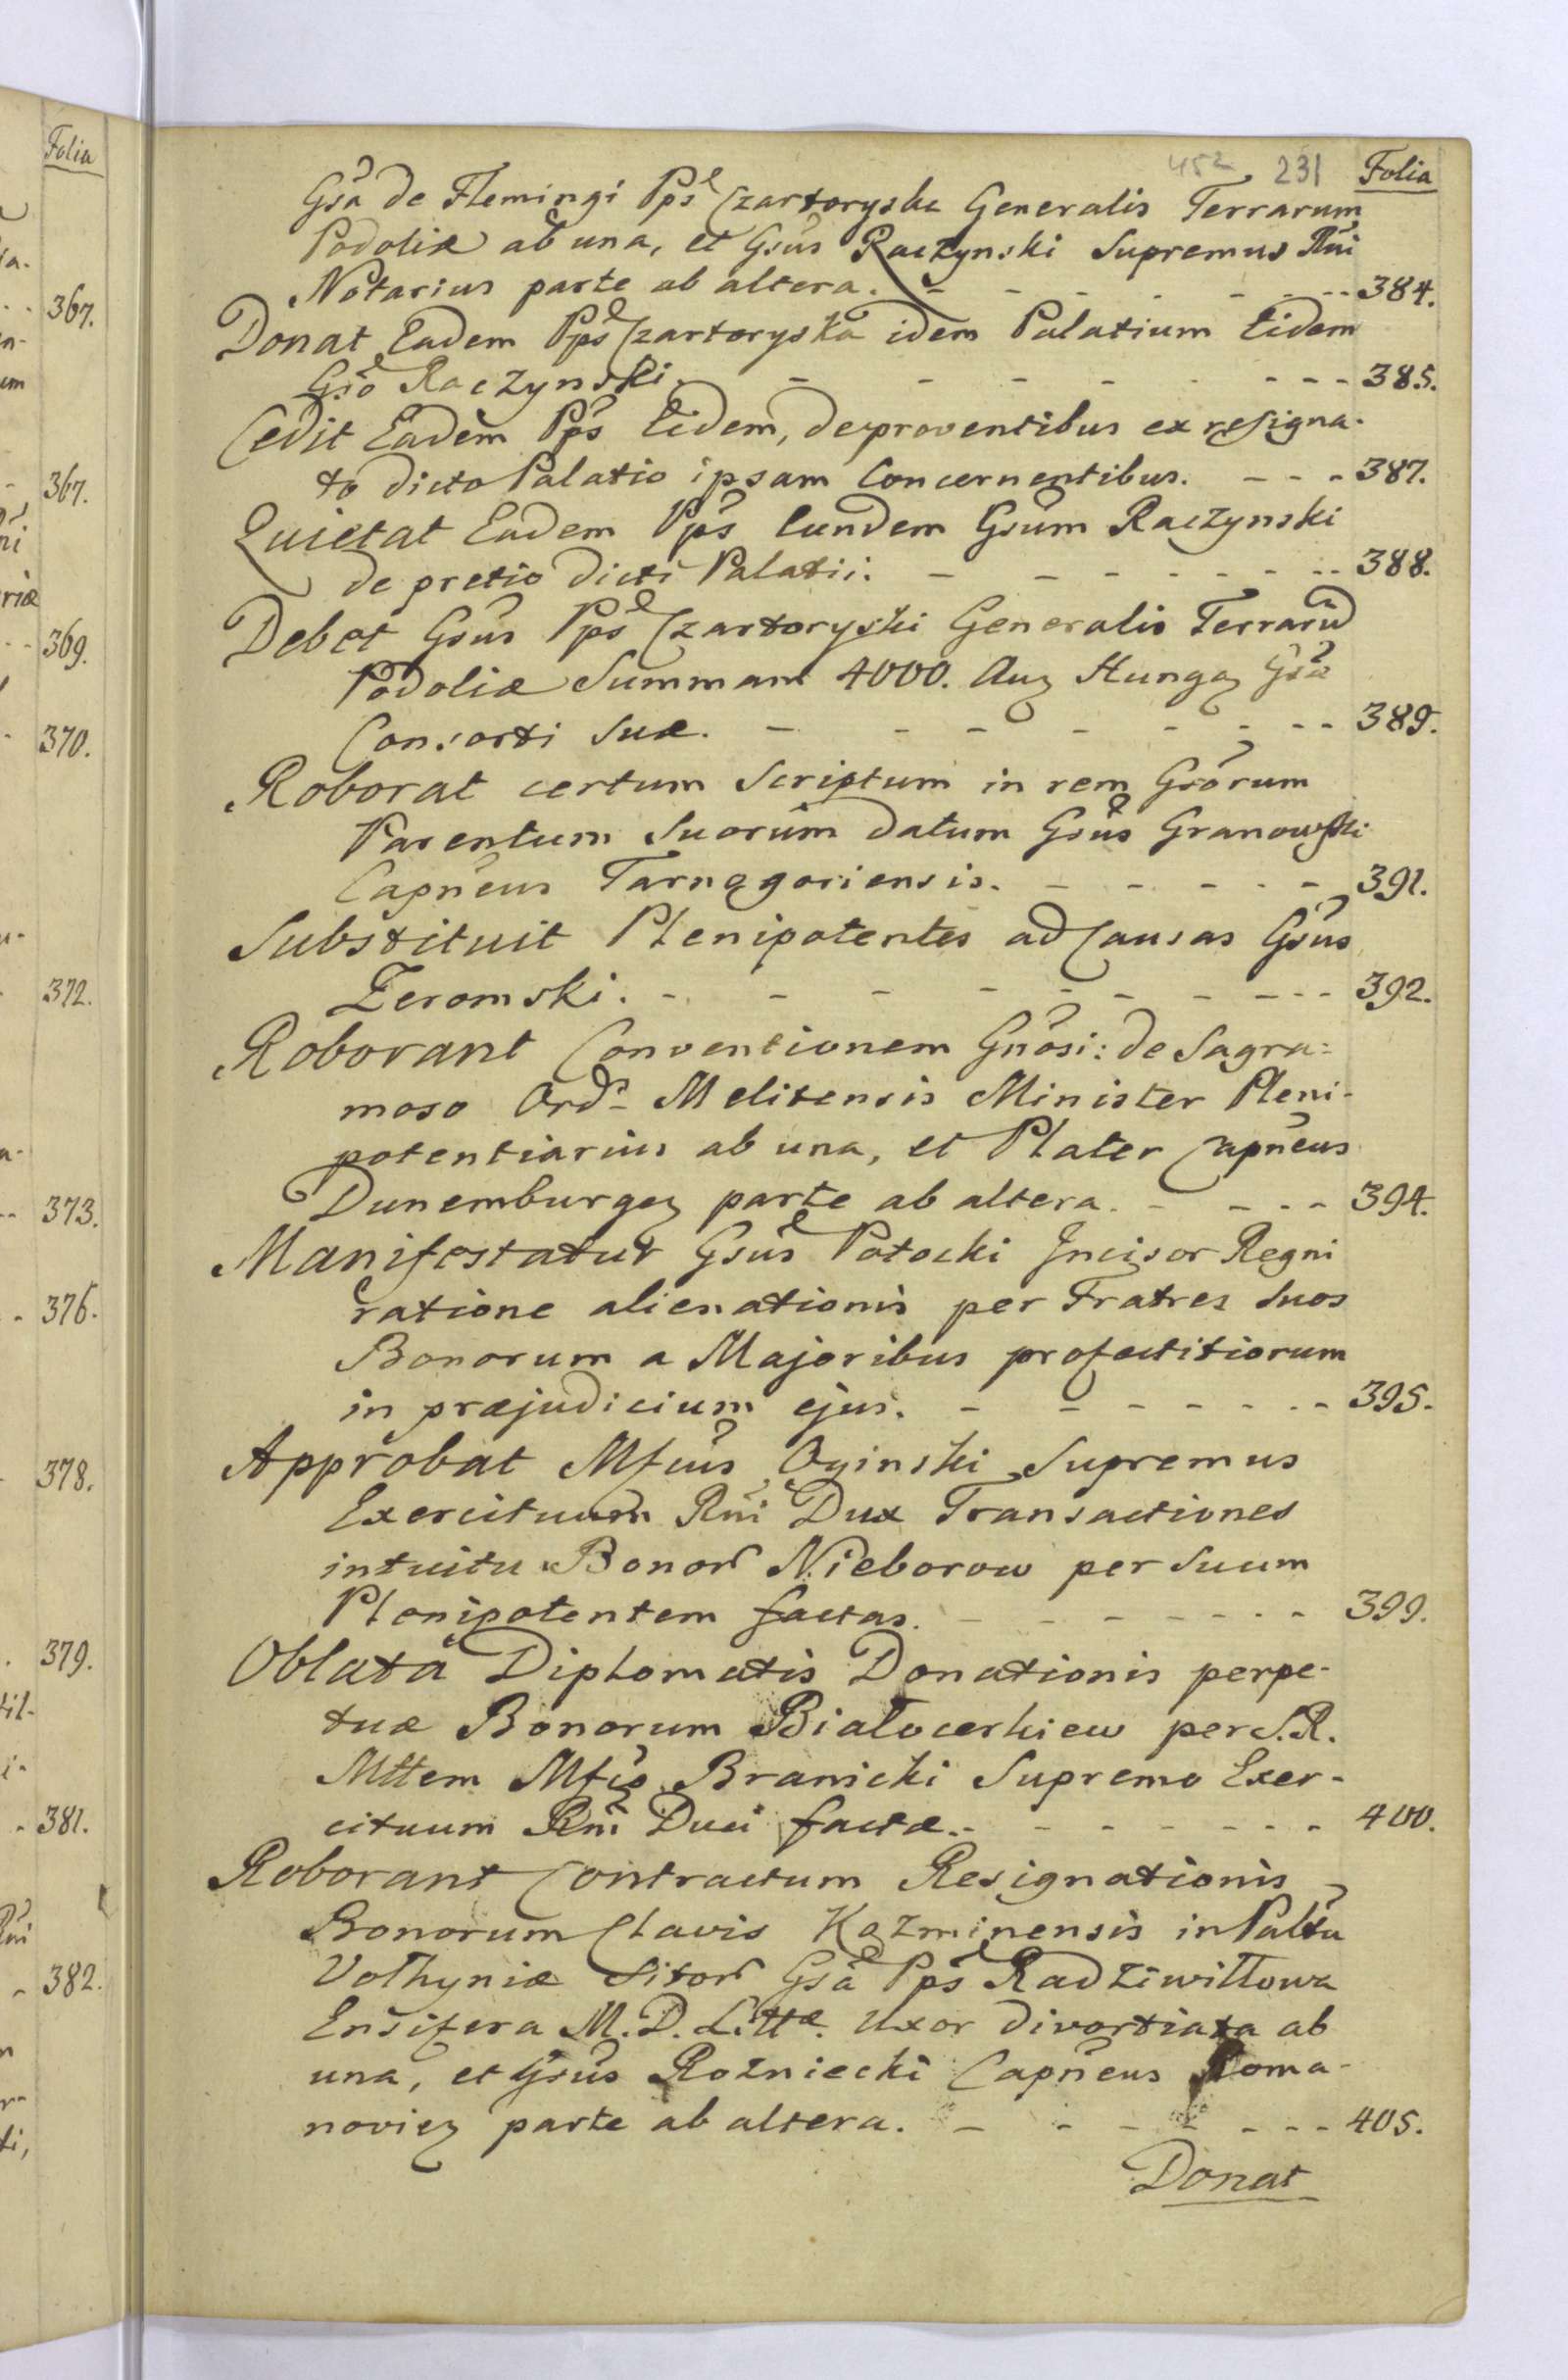 Folia
367.
367.
369.
370.
372.
373.
376.
378.
379.
381.
382.
452 231 Folia
Gsa de Flemingi Pps Czartoryska Generalis Terrarum
Podoliæ ab una, et Gsus Raczynski Supremus Rni
Notarius parte ab altera. - - - - - - - 384.
Donat Eadem Pps Czartoryska idem Palatium Eidem
Gso Raczynski. - - - - - - - - 385.
Cedit Eadem Pps Eidem, de proventibus ex resigna-
to dicto Palatio ipsam Concernentibus. - - - 387.
Quietat Eadem Pps Eundem Gsum Raczynski
de pretio dicti Palatii. - - - - - - - - 388.
Debet Gsus Pps Czartoryski Generalis Terrarũ
Podoliæ Summam 4000. Aur Hungar Gsæ
Consorti Suæ. - - - - - - - - 389.
Roborat certum Scriptum in rem Gsorum
Parentum Suorum datum Gsus Granowski
Capneus Tarnogoriensis. - - - - - 391.
Substituit Plenipotentes ad Causas Gsus
Żeromski. - - - - - - - - - - 392.
Roborant Conventionem Gnosi: de Sagra=
moso Ords Melitensis Minister Pleni-
potentiarius ab una, et Plater Capneus
Dunemburgen parte ab altera. - - - - 394.
Manifestatur Gsus Potocki Incisor Regni
ratione alienationis per Fratres Suos
Bonorum a Majoribus profectitiorum
in præjudicium ejus. - - - - - - - - 395.
Approbat Mfcus Oginski Supremus
Exercituum Rni Dux Transactiones
intuitu Bonor Nieborow per Suum
Plenipotentem factas. - - - - - - - 399.
Oblata Diplomatis Donationis perpe-
tuæ Bonorum Białocerkiew per S.R.
Mttem Mfco Branicki Supremo Exer-
cituum Rni Duci factæ. - - - - - - - 400.
Roborant Contractum Resignationis
Bonorum Clavis Kozminensis in Paltu
Volhyniæ Sitor Gsa Pps Radziwiłłowa
Ensifera M.D. Littæ. Uxor divortiata ab
una, et Gsus Rożniecki Capneus Roma-
novien parte ab altera. - - - - - - - 405.
Donat